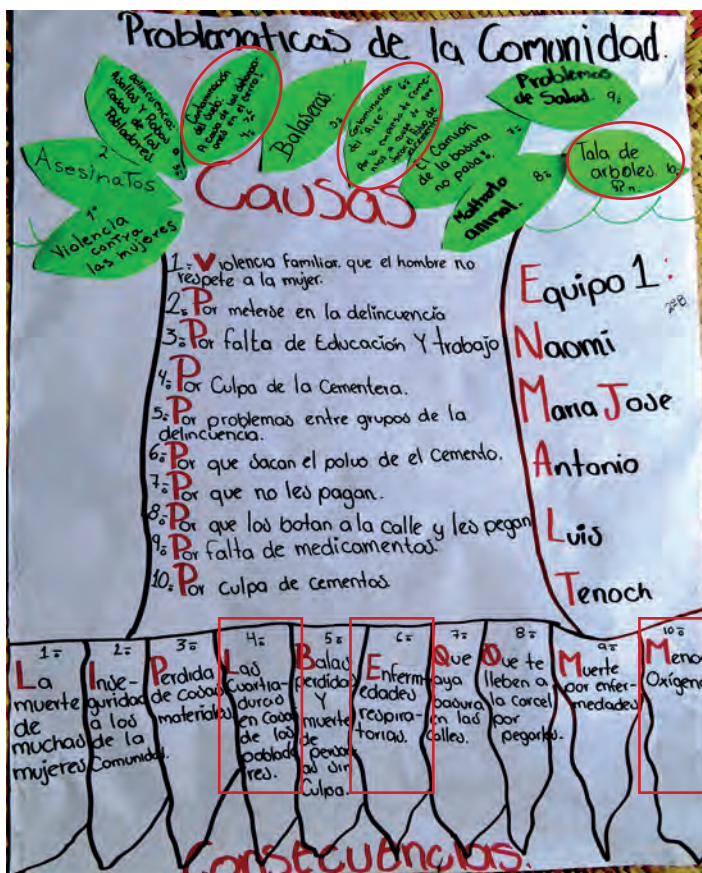 Problematicas de la Comunidad.
1º
Violencia
contra
las mujeres
2
Asesinatos
delincuencia:
Asaltos y Robos
Casas de los
Pobladores
Contaminación
del Suelo.
A causa de las detona-
ones en el cerro!
4º
Balaseras
5º
Contaminación
del Aire
6º
Por la empresa de Cemen-
El Camion
de la basura
no pasa
7º
Maltrato
animal.
8º
Problemas
de Salud.
9º
Tala de
arboles.
10º
Causas
1º Violencia familiar. que el hombre no
respete a la mujer.
2º Por meterse en la delincuencia
3º Por falta de Educación Y trabajo
4º Por Culpa de la Cementera.
5º Por problemas entre grupos de la
delincuencia.
6º Por que sacan el polvo de el Cemento.
7º Por que no les pagan.
8º Por que los botan a la calle y les pegan
9º Por falta de medicamentos
10º Por culpa de cementos
Equipo 1:
2º B
Naomi
Maria Jose
Antonio
Luis
Tenoch
1º
La
muerte
de
muchas
mujeres
2º
Inse-
guridad
a los
de la
Comunidad.
3º
Perdida
de cosas
materiales
4º
Las
Cuartia-
duras
en Casas
de los
poblado
res.
5º
Balas
perdidas
Y
muerte
de
person
as sin
Culpa.
6º
Enferm
edades
respira-
torias.
7º
Que
aya
basura
en las
calles.
8º
Que te
lleben a
la carcel
por
pegarles.
9º
Muerte
por enfer-
medades
10º
Menos
Oxigeno
Consecuencias.